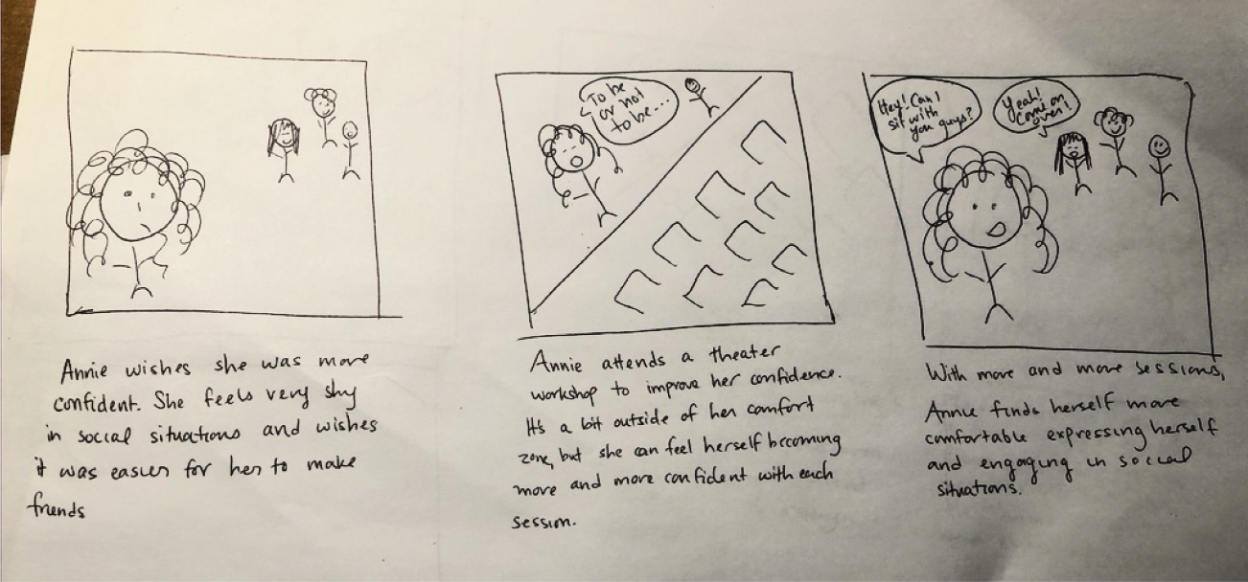 Annie wishes she was more
confident. She feels very shy
in social situations and wishes
it was easier for her to make
friends
To be
or not
to be...
Annie attends a theater
workshop to improve her confidence.
It's a bit outside of her comfort
zone, but she can feel herself becoming
more and more confident with each
session.
Hey! Can I
sit with
you guys?
Yeah!
Come on
over!
With more and more sessions,
Annie finds herself more
comfortable expressing herself
and engaging in social
situations.